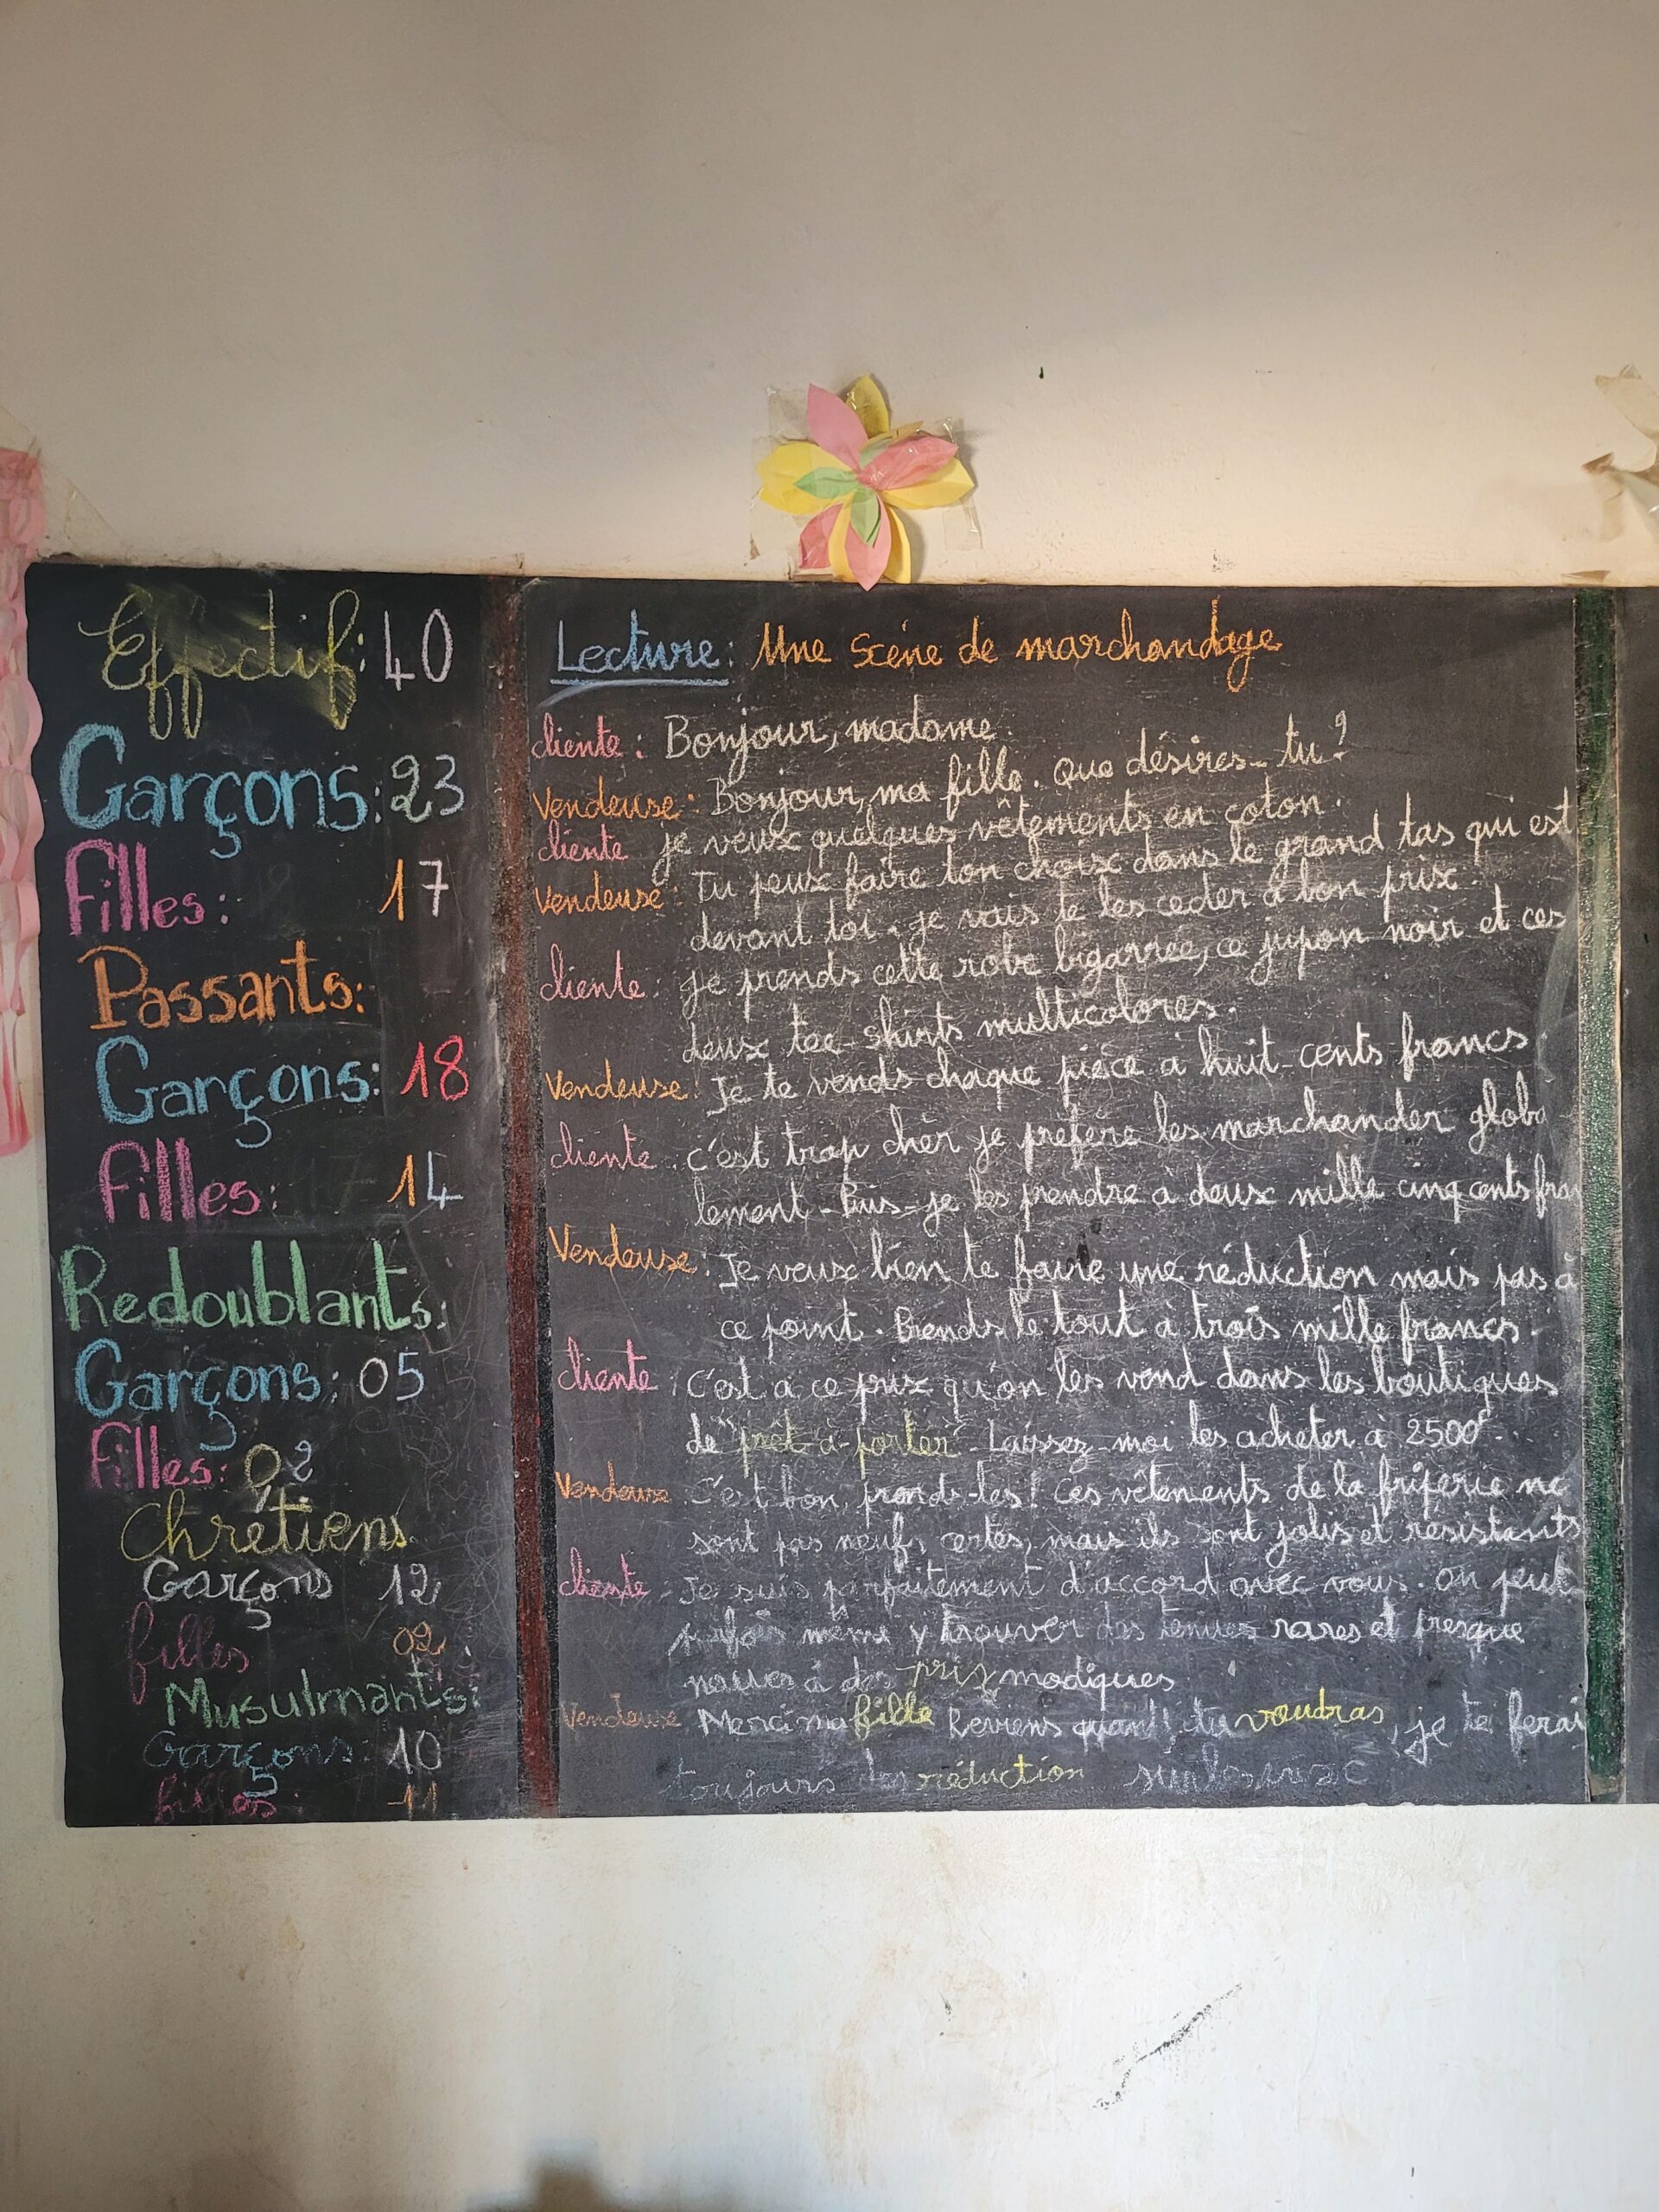 Effectif: 40
Garçons: 23
Filles: 17
Passants:
Garçons: 18
Filles: 14
Redoublants:
Garçons: 05
Filles: 02
Chrétiens
Garçons 12
filles 02
Musulmants:
Garçons: 10
filles 11
Lecture: Une Scène de marchandage
cliente: Bonjour, madame.
Vendeuse: Bonjour, ma fille. Que désires-tu?
cliente je veux quelques vêtements en coton.
Vendeuse: Tu peux faire ton choix dans le grand tas qui est
devant toi. je vais te les céder à bon prix.
cliente: je prends cette robe bigarrée, ce jupon noir et ces
deux tee-shirts multicolores.
Vendeuse: Je te vends chaque pièce à huit-cents francs.
cliente: c'est trop chèr je préfère les marchander globa
lement. Puis-je les prendre à deux mille cinq cents fran
Vendeuse: Je veux bien te faire une réduction mais pas à
ce point. Prends le tout à trois mille francs.
cliente: C'est à ce prix qu'on les vend dans les boutiques
de "prêt-à-porter". Laissez-moi les acheter à 2500F.
Vendeuse C'est bon, prends-les! Ces vêtements de la friperie ne
sont pas neufs, certes, mais ils sont jolis et résistants
cliente: Je suis parfaitement d'accord avec vous. On peut
parfois même y trouver des tenues rares et presque
neuves à des prix modiques
Vendeuse Merci ma fille Reviens quand tu voudras, je te ferai
toujours des réduction sur les prix